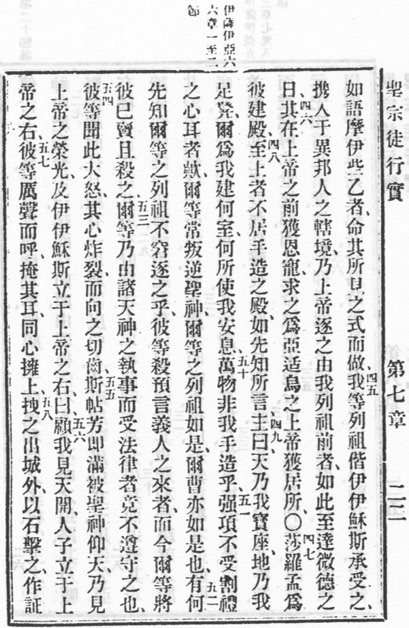 聖宗徒行實 第七章 二二
如語摩伊些乙者、命其所見之式而做、四五我等列祖偕伊伊穌斯承受之、
携入于異邦人之轄境、乃上帝逐之由我列祖前者、如此至達微德之
日、四六其在上帝之前獲恩寵、求之爲亞适烏之上帝獲居所、〇四七莎羅孟爲
彼建殿、四八至上者不居手造之殿、如先知所言、四九主曰、天乃我寶座、地乃我
足凳、爾爲我建何室、何所使我安息、五十萬物非我手造乎、五一强項不受割禮
之心耳者歟、爾等常叛逆聖神、爾等之列祖如是、爾曹亦如是也、五二有何
先知爾等之列祖不窘逐之乎、彼等殺預言義人之來者、而今爾等將
彼已賣且殺之、五三爾等乃由諸天神之執事而受法律者、竟不遵守之也
五四彼等聞此大怒、其心炸裂、而向之切齒、五五斯帖芳即滿被聖神、仰天乃見
上帝之榮光、及伊伊穌斯立于上帝之右、五六曰、顧我見天開、人子立于上
帝之右、五七彼等厲聲而呼、掩其耳、同心擁上、五八拽之出城外、以石擊之、作証
伊薩伊亞六
六章一至二
節